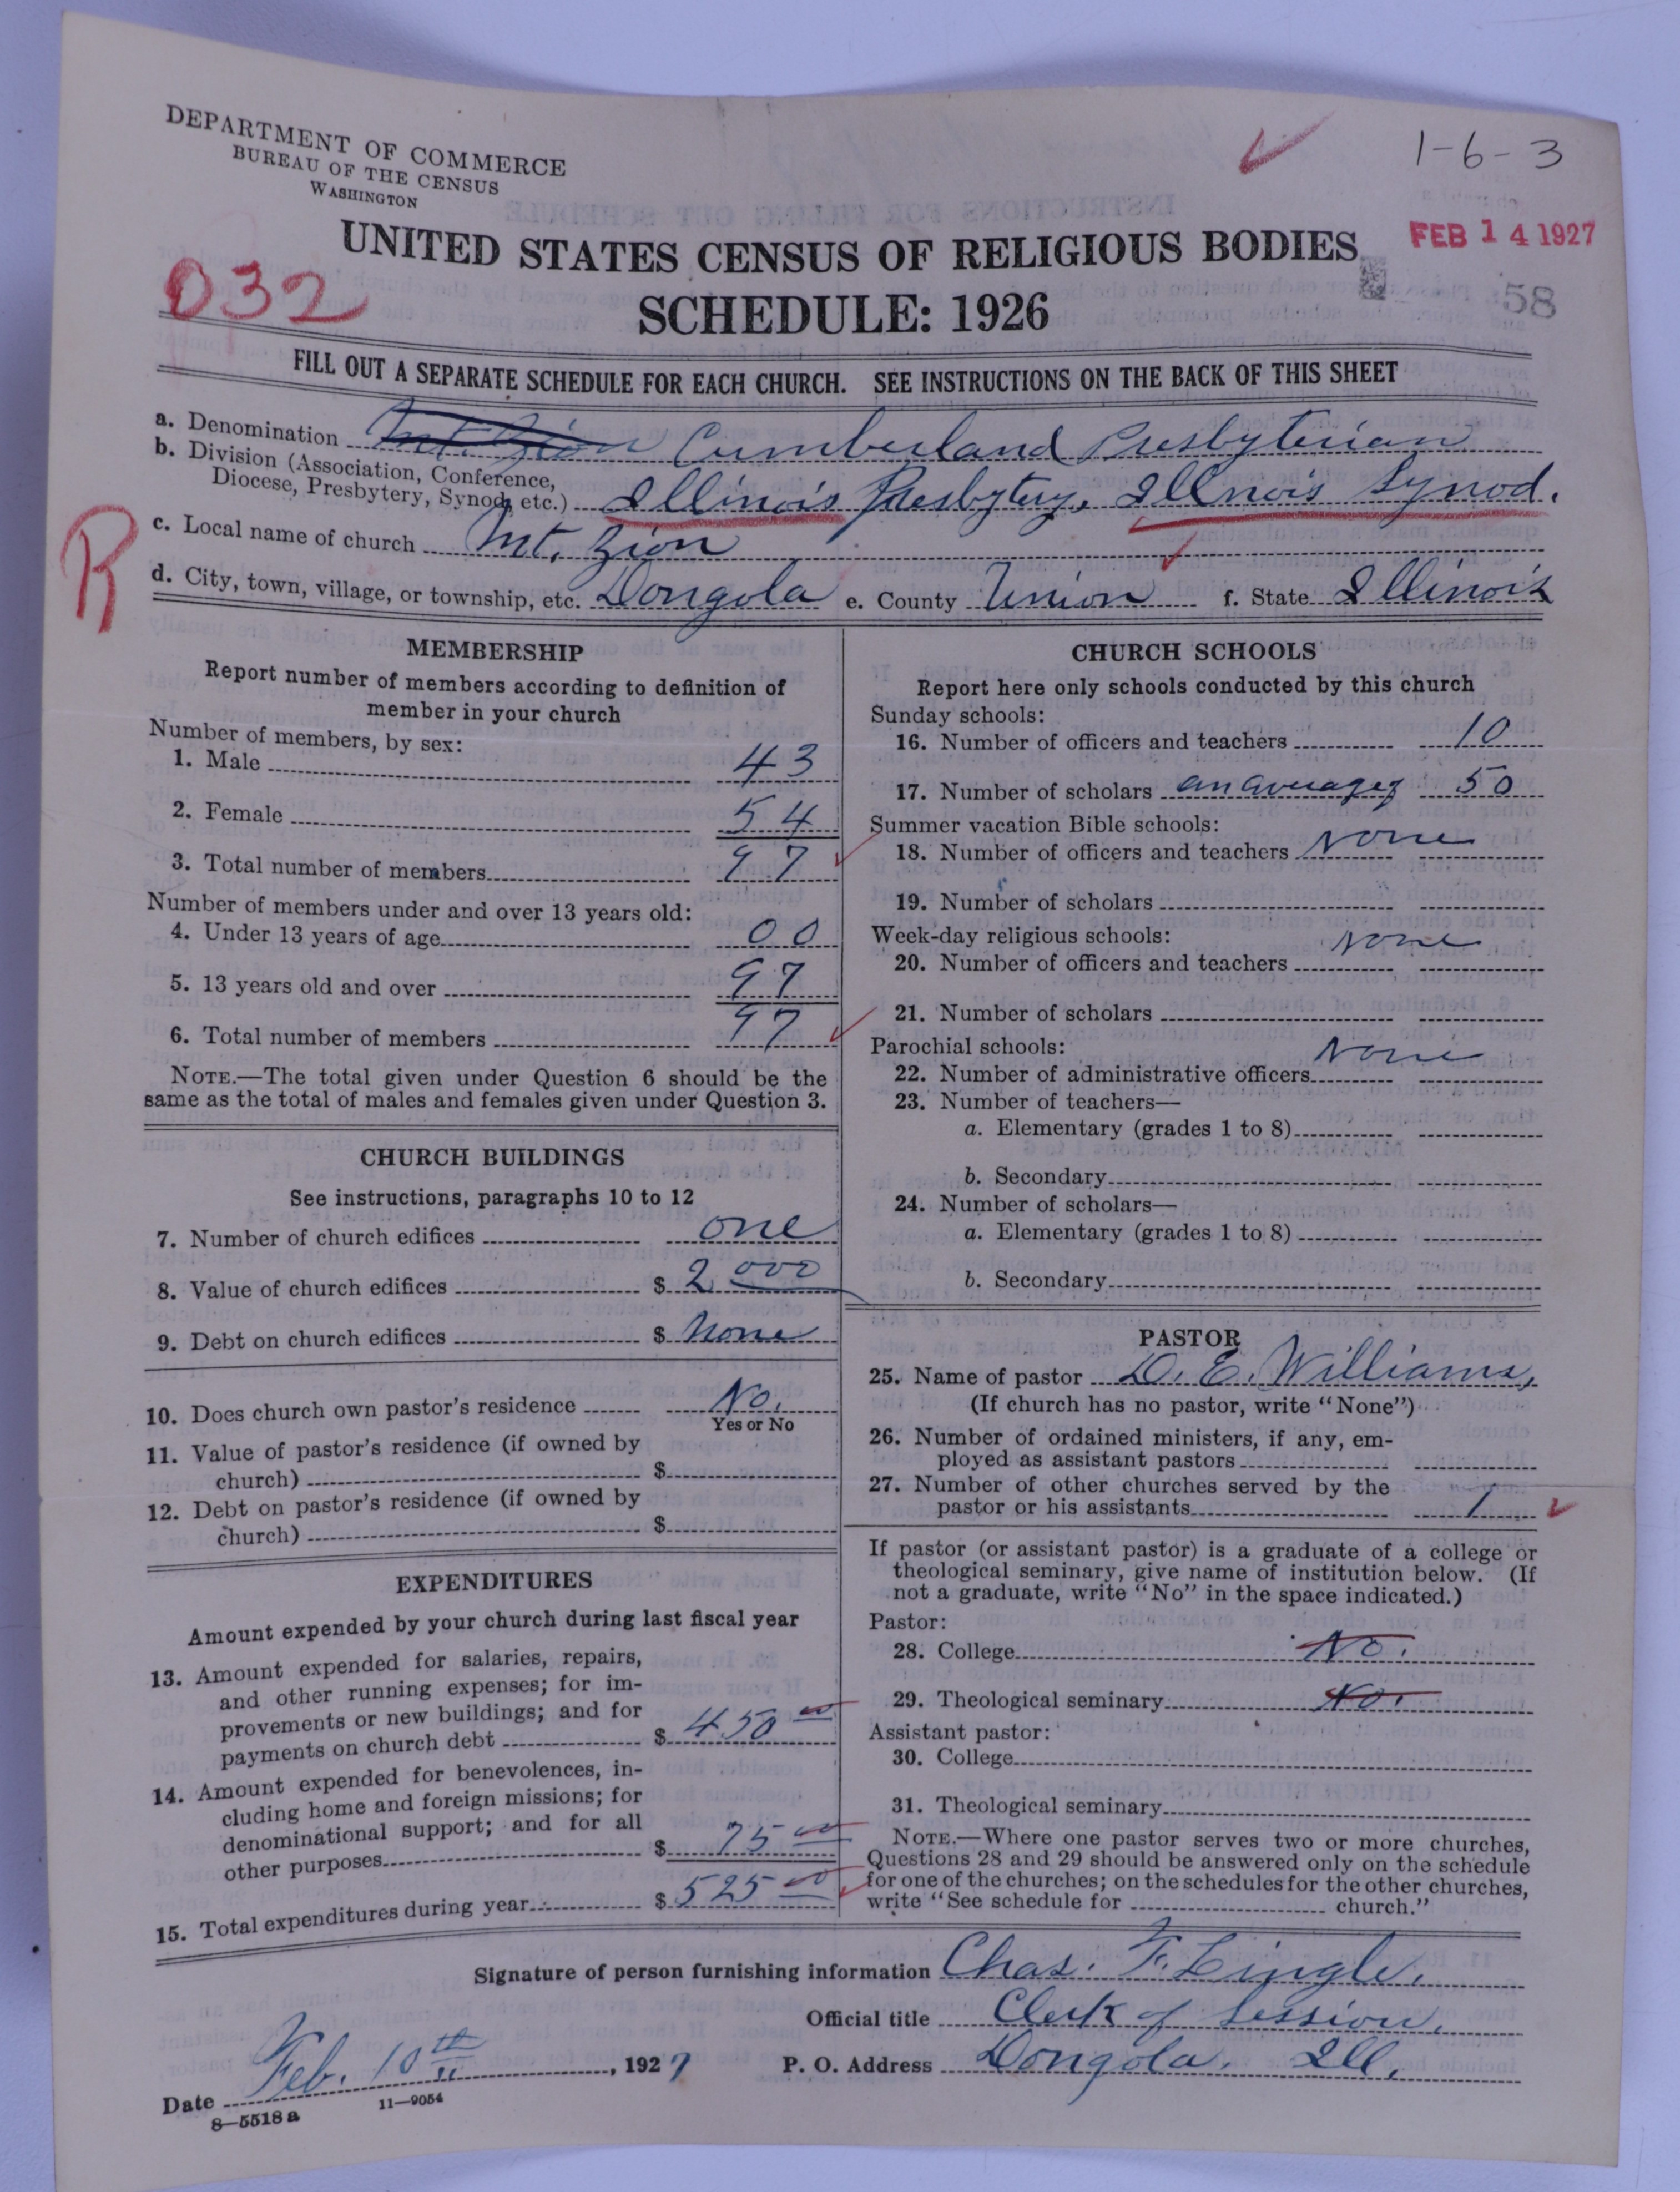 DEPARTMENT OF COMMERCE
BUREAU OF THE CENSUS
WASHINGTON
1-6-3
UNITED STATES CENSUS OF RELIGIOUS BODIES
FEB 14 1927
032
SCHEDULE: 1926
58
FILL OUT A SEPARATE SCHEDULE FOR EACH CHURCH. SEE INSTRUCTIONS ON THE BACK OF THIS SHEET
a. Denomination Mt. Zion Cumberland Presbyterian
b. Division (Association, Conference,
Diocese, Presbytery, Synod, etc.) Illinois Presbytery, Illnois Synod.
R
c. Local name of church Mt. Zion
d. City, town, village, or township, etc. Dongola e. County Union f. State Illinois
MEMBERSHIP
Report number of members according to definition of
member in your church
Number of members, by sex:
1. Male 43
2. Female 54
3. Total number of members 97
Number of members under and over 13 years old:
4. Under 13 years of age 00
5. 13 years old and over 97
6. Total number of members 97
NOTE.—The total given under Question 6 should be the
same as the total of males and females given under Question 3.
CHURCH BUILDINGS
See instructions, paragraphs 10 to 12
7. Number of church edifices one
8. Value of church edifices $ 2000
9. Debt on church edifices $ None
10. Does church own pastor's residence No.
Yes or No
11. Value of pastor's residence (if owned by
church) $
12. Debt on pastor's residence (if owned by
church) $
EXPENDITURES
Amount expended by your church during last fiscal year
13. Amount expended for salaries, repairs,
and other running expenses; for im-
provements or new buildings; and for
payments on church debt $ 450 00
14. Amount expended for benevolences, in-
cluding home and foreign missions; for
denominational support; and for all
other purposes $ 75 00
15. Total expenditures during year $ 525 00
CHURCH SCHOOLS
Report here only schools conducted by this church
Sunday schools:
16. Number of officers and teachers 10
17. Number of scholars an average of 50
Summer vacation Bible schools:
18. Number of officers and teachers None
19. Number of scholars
Week-day religious schools:
20. Number of officers and teachers None
21. Number of scholars
Parochial schools:
22. Number of administrative officers None
23. Number of teachers—
a. Elementary (grades 1 to 8)
b. Secondary
24. Number of scholars—
a. Elementary (grades 1 to 8)
b. Secondary
PASTOR
25. Name of pastor D. E. Williams,
(If church has no pastor, write "None")
26. Number of ordained ministers, if any, em-
ployed as assistant pastors
27. Number of other churches served by the
pastor or his assistants 1
If pastor (or assistant pastor) is a graduate of a college or
theological seminary, give name of institution below. (If
not a graduate, write "No" in the space indicated.)
Pastor:
28. College No.
29. Theological seminary No.
Assistant pastor:
30. College
31. Theological seminary
NOTE.—Where one pastor serves two or more churches,
Questions 28 and 29 should be answered only on the schedule
for one of the churches; on the schedules for the other churches,
write "See schedule for church."
Signature of person furnishing information Chas. F. Lingle.
Official title Clerk of Session.
Date Feb. 10th, 1927 P. O. Address Dongola. Ill.
8—5518 a 11—9054